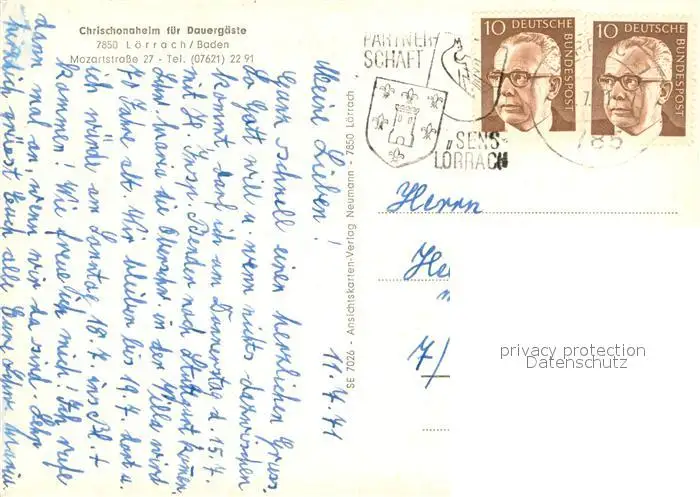 Chrischonaheim für Dauergäste
7850 Lörrach/Baden
Mozartstraße 27 - Tel. (07621) 22 91
11.7.71
Meine Lieben!
Ganz schnell einen herzlichen Gruss.
So Gott will u. wenn nichts dazwischen
kommt, darf ich am Donnerstag d. 15.7.
mit St. Insp. nach Stuttgart kommen,
Schw. Maria die Oberschw. in der Villa wird
70 Jahre alt. Wir bleiben bis 19.7. dort u.
ich würde am Sonntag 18.7. ins Bl.
kommen! Wie freue ich mich! Ich rufe
dann mal an, wenn wir da sind. Sehr
herzlich grüsst Euch alle Eure
SE 7026 - Ansichtskarten-Verlag Neumann - 7850 Lörrach
PARTNER
SCHAFT
SENS-
LÖRRACH
785
10 DEUTSCHE
BUNDESPOST
10 DEUTSCHE
BUNDESPOST
Herrn
He
7/
privacy protection
Datenschutz